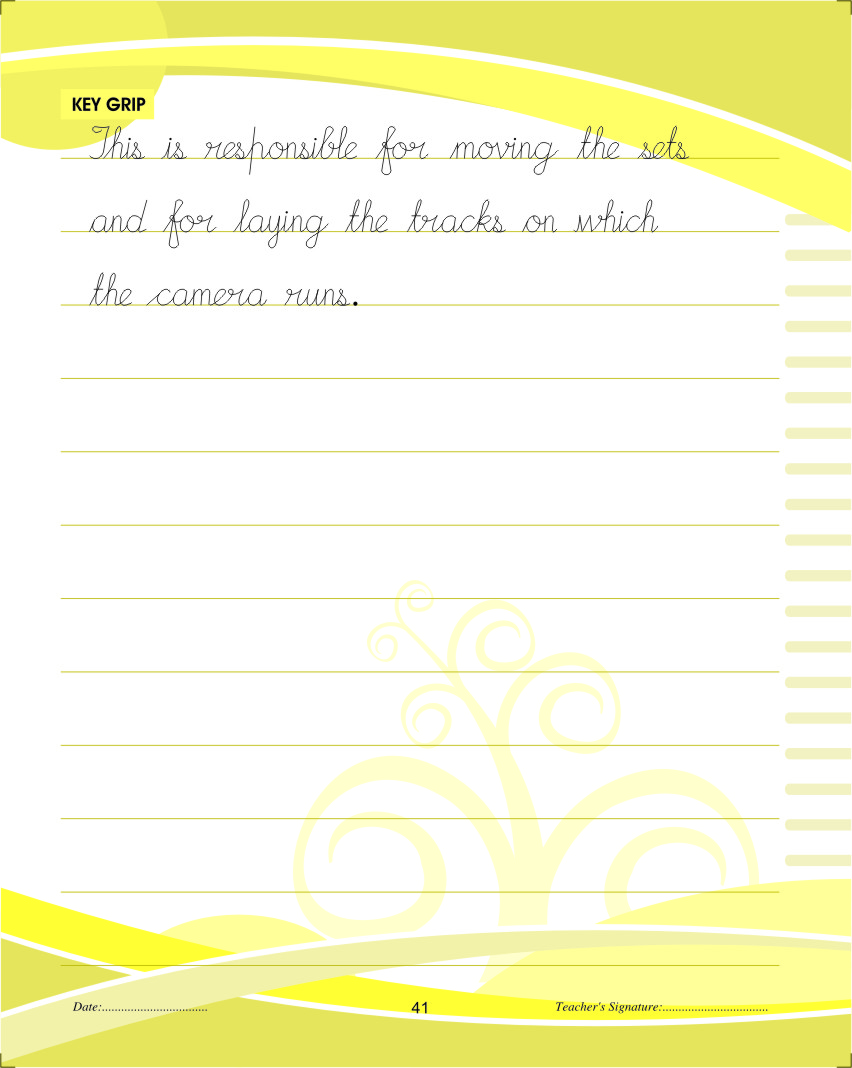 KEY GRIP
This is responsible for moving the sets
and for laying the tracks on which
the camera runs.
Date:.................................
41
Teacher's Signature:.................................